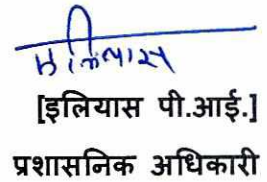 [इलियास पी.आई.]
प्रशासनिक अधिकारी